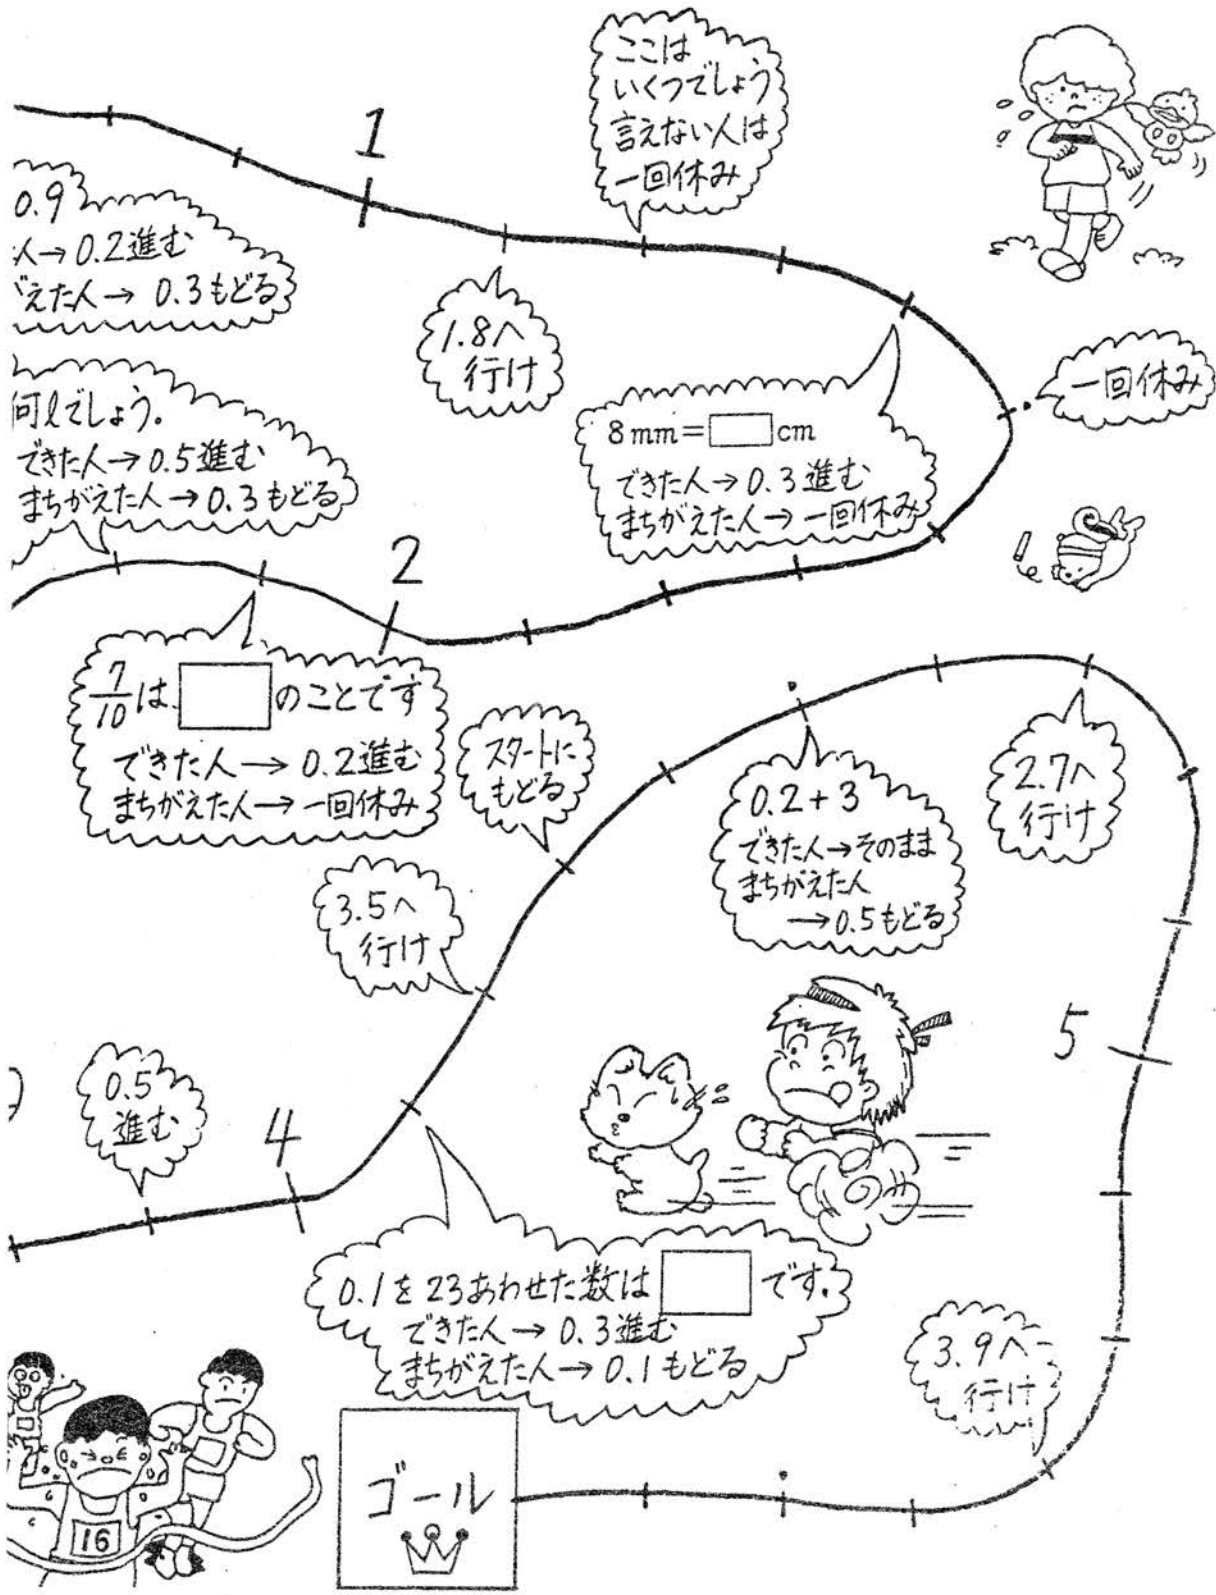 1
ここは
いくつでしょう
言えない人は
一回休み
0.9
人→0.2進む
えた人→0.3もどる
1.8へ
行け
一回休み
8mm=□cm
できた人→0.3進む
まちがえた人→一回休み
何ℓでしょう。
できた人→0.5進む
まちがえた人→0.3もどる
2
7/10は□のことです
できた人→0.2進む
まちがえた人→一回休み
スタートに
もどる
0.2+3
できた人→そのまま
まちがえた人
→0.5もどる
2.7へ
行け
3.5へ
行け
5
0.5
進む
4
0.1を23あわせた数は□です。
できた人→0.3進む
まちがえた人→0.1もどる
3.9へ
行け
ゴール
16